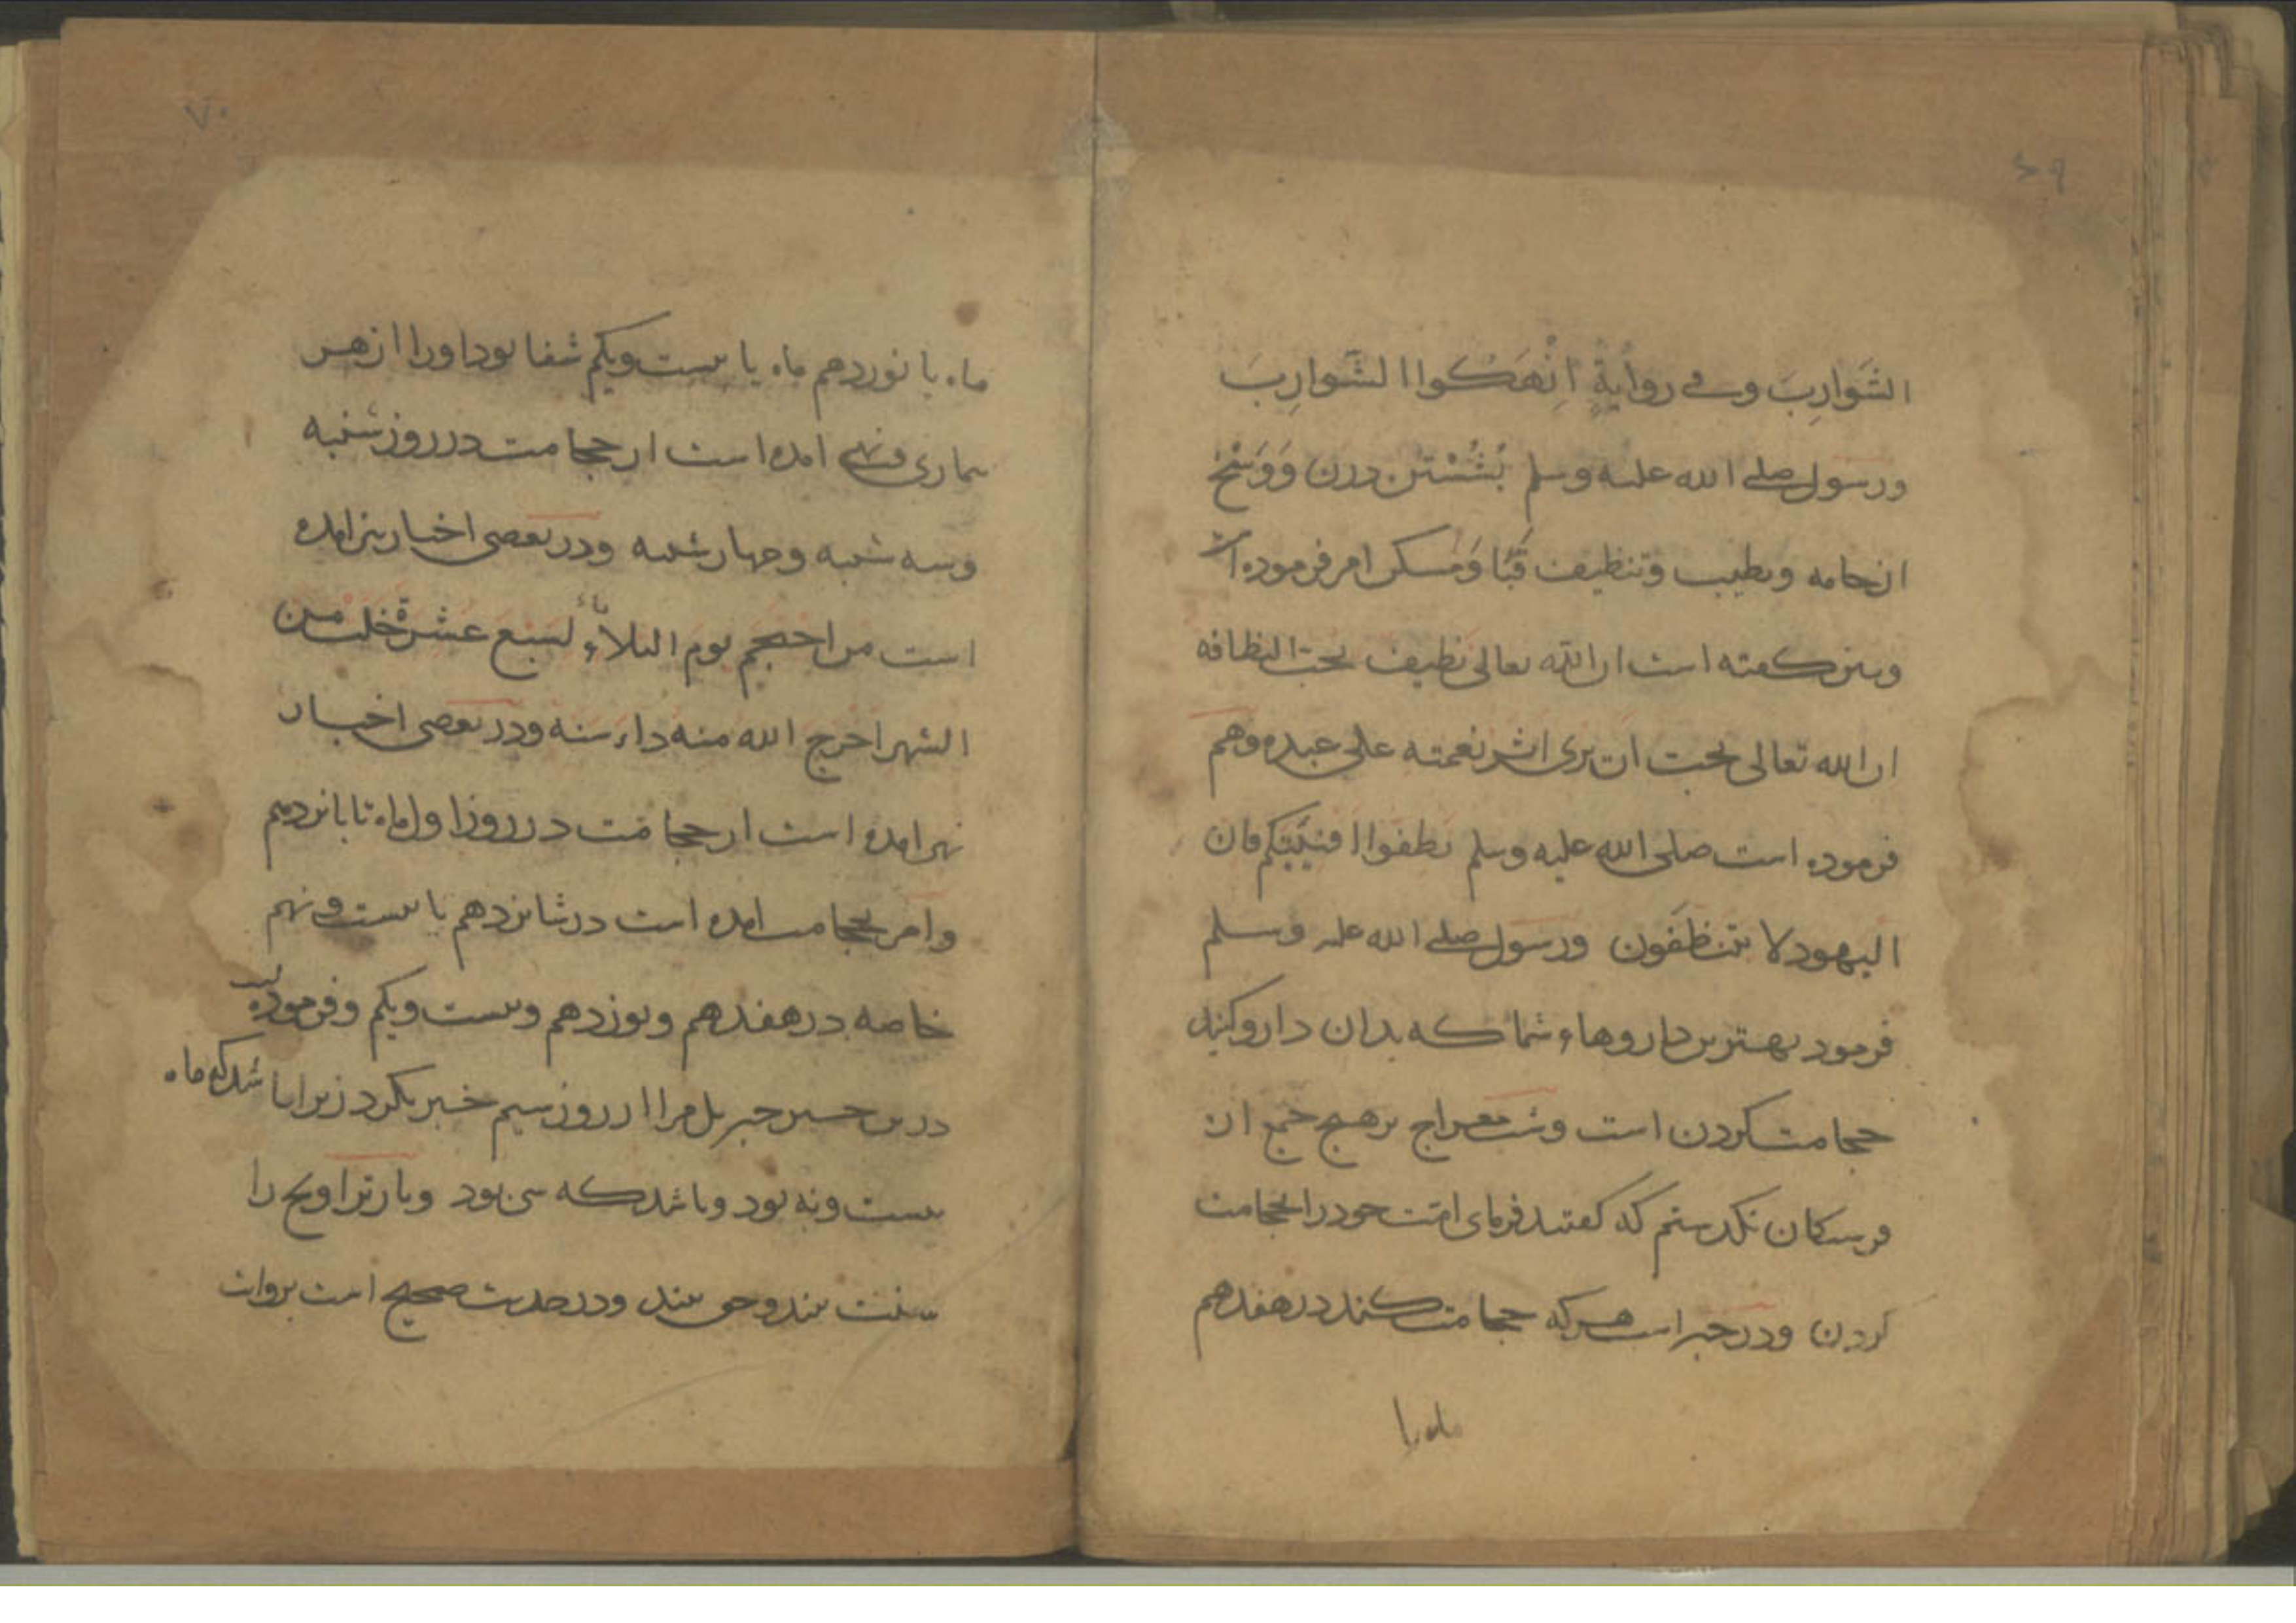 ۶۹
الشَوارِبَ وفی روایةٍ اِنْهَكوا الشَوارِبَ
ورسول صلی الله علیه وسلم بُشُسْتن درن وَوَسَخ
از جامه وتطیب وتنظیف قبا وَمَسکن امر فرموده است
ونیز کفته است ان الله تعالی نظیف یحب النظافه
ان الله تعالی یحب ان یری اثر نعمته علی عبده وهم
فرموده است صلی الله علیه وسلم نظفوا افنیتکم فان
الیهود لا تتنظفون ورسول صلی الله علیه وسلم
فرمود بهترین داروهاء شما که بدان دارو کنید
حجامت کردن است وشب معراج بر هیچ جمع از
فرستکان نکدستم که کفتند فرمای امت خود را بحجامت
کردن ودر خبر است هرکه حجامت کند در هفدهم
ماه یا
۷۰
ماه یا نوزدهم ماه یا بیست ویکم شفا بود اورا از هر
بیماری ونهی امده است از حجامت در روز شنبه
وسه شنبه وچهار شنبه ودر بعضی اخبار نیز امده
است من احتجم یوم الثلاثاء لسبع عشرة خلت من
الشهر اخرج الله منه داء سنه ودر بعضی اخبار
نهی امده است از حجامت در روز اول ماه تا پانزدهم
وامر بحجامت امده است در شانزدهم تا بیست ونهم
خاصه در هفدهم ونوزدهم وبیست ویکم وفرموده
جبریل مرا از روز سیم خبر نکرد زیرا باشد که ماه
بیست ونه بود وباشد که سی بود ونماز تراویح را
سنت بیند وحق بیند ودر حدیث صحیح است بروایت